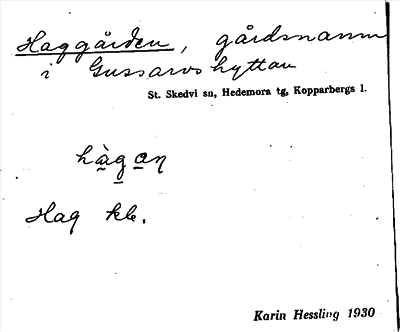 Haggården, gårdsnamn
i Gussarvshyttan
St. Skedvi sn, Hedemora tg, Kopparbergs l.
hàgo̲n
Hag kb.
Karin Hessling 1930